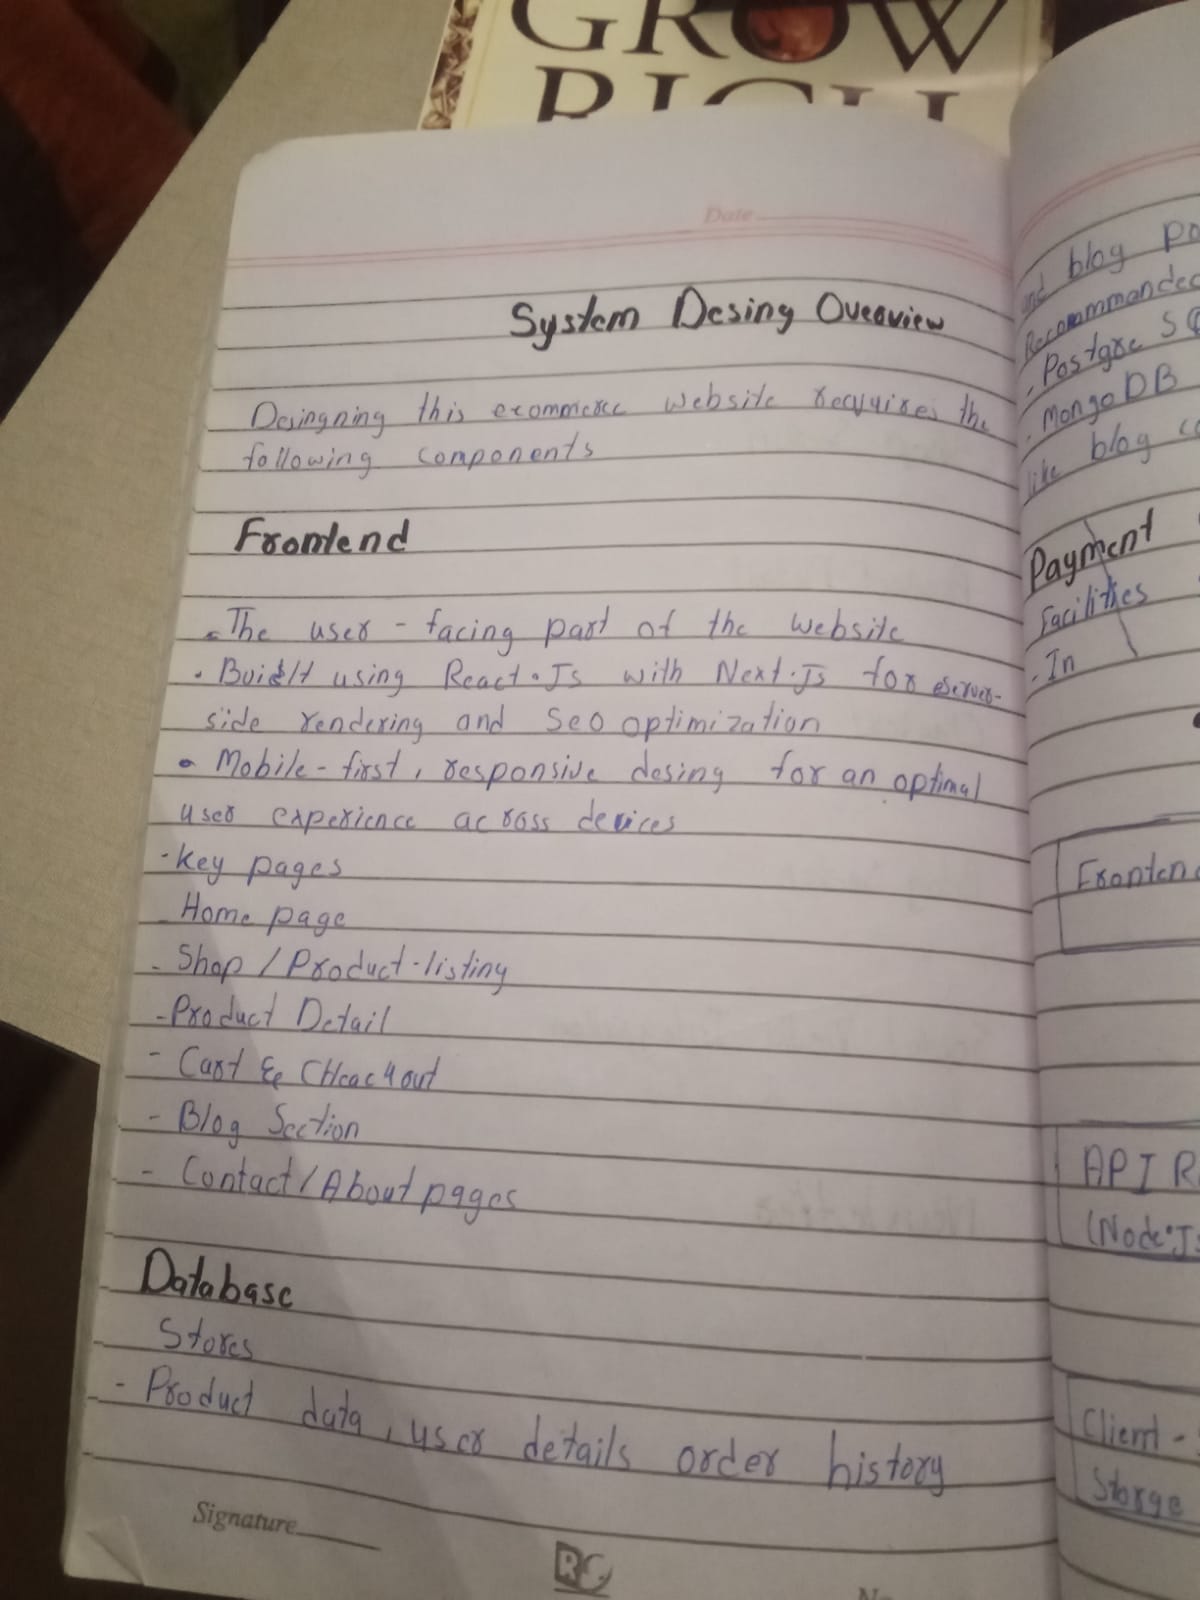 GROW
RICH
Date
System Desing Overview
Desingning this ecommerce website requires the
following components
Frontend
- The user - facing part of the website
- Built using React.Js with Next.Js for server-
side rendering and Seo optimization
• Mobile - first, responsive desing for an optimal
user experience across devices
- Key pages
- Home page
- Shop / Product-listing
- Product Detail
- Cart & CHeackout
- Blog Section
- Contact / About pages
Database
Stores
- Product data, user details order history
Signature
RC
and blog
Recommanded
- Postgre S
- MongoDB
like blog
Payment
Facilities
- In
Frontend
API
(Node.Js
Client -
Storge